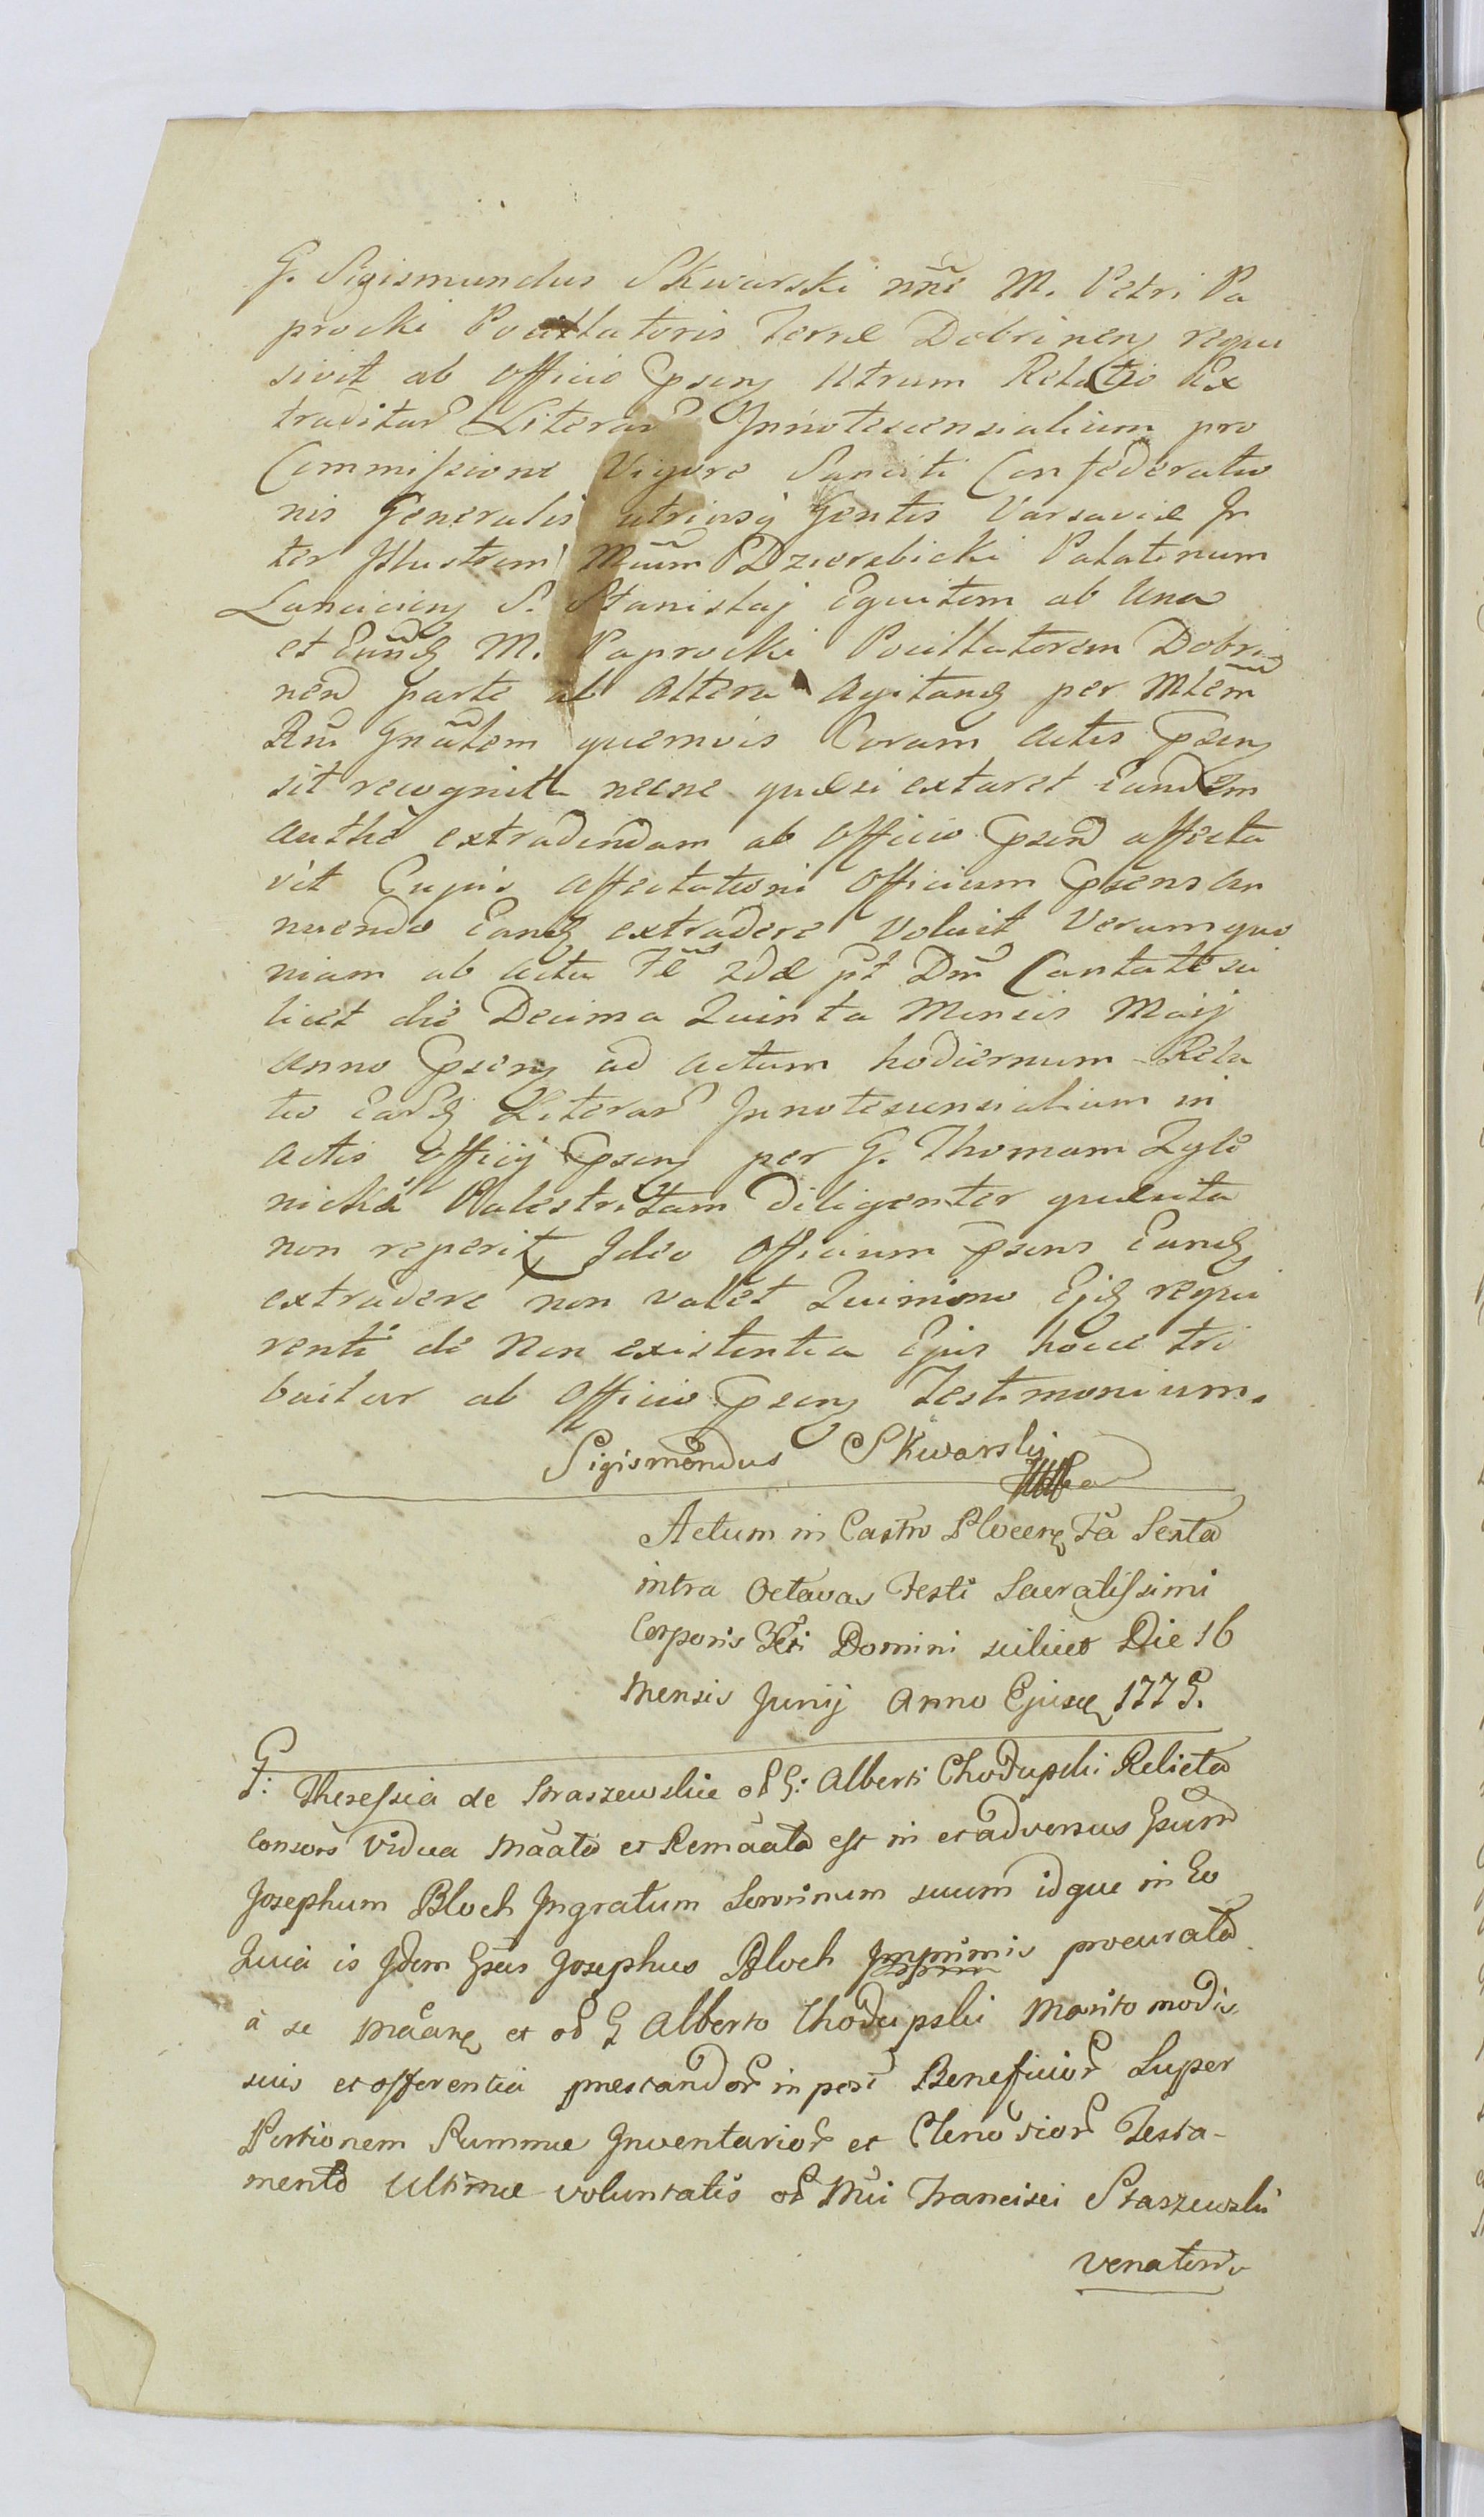 G. Sigismundus Skwarski nñe M. Petri Pa
procki Pocillatoris Terræ Dobrinen̄ requi
sivit ab Officio Pr̃sen̄ Utrum Relatio Ex
traditar̃ Literar̃ Innotescensialium pro
Commissione Vigore Sanciti Confederatio
nis Generalis utriusq̃ Gentis Varsaviæ In
ter Illustrem Mũm Dzierzbicki Palatinum
Lancicien̄ S. Stanislaj Equitem ab Una
et Eund̃ M. Paprocki Pocillatorem Dobri
nen̄ parte ab Altera Agitand̃ per Mlem̃
Rñi Gñalem quemvis Coram Actis Pr̃sen̄
sit recognita necne quæ si extaret Eandem
authẽ extradendam ab Officio Pr̃sen̄ affecta
vit Cujus affectationi Officium Pr̃sens an
nuendo Eand̃ extradere Voluit Verum quo
niam ab Actu Fẽ 2dæ pt̃ Dñi Cantate sci
licet die Decima Quinta Mensis Maij
Anno Pr̃sen̄ ad actum hodiernum Rela
tio Eard̃ Literar̃ Innotescensialium in
Actis Officij Pr̃sen̄ per G. Thomam Zyli
nicki Palestritam diligenter quæsita
non reperit̃ Ideo Officium Pr̃sens Eand̃
extradere non valet Quinimo Ejd̃ requi
renti de Non existentia Ejus hocce tri
buitur ab Officio Pr̃sen̄ Testimonium.
Sigismondus Skwarski
Actum in Castro Plocen̄ Fã Sexta
intra Octavas Festi Sacratissimi
Corporis Xti Domini scilicet Die 16
Mensis Junij Anno Ejusd̃ 1775.
G: Theressia de Staszewskie ol̃ G: Alberti Chodupski Relicta
Consors Vidua Mãata et Remãata est in et adversus Gsum̃
Josephum Bloch Ingratum Servinum suum idque in Eo
Quia is Idem Gsus Josephus Bloch Imprimis procurata
à se Mãan̄ et ol̃ G Alberto Chodupski Marito modis
suis et offerentia prestandor̃ in post̃ Beneficior̃ Super
Portionem Summæ Inventarior̃ et Clenodior̃ Testa-
mento Ultimæ voluntatis ol̃ Mũi Francisci Staszewski
Venatoris